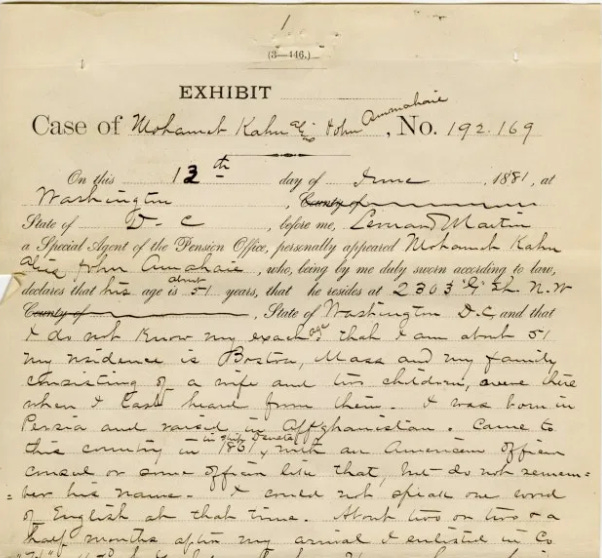 1
(3—446.)
EXHIBIT
Case of Mohamet Kahn alias John Ammahaie, No. 192.169
On this 13th day of June, 1881, at
Washington, County of
State of D. C, before me, Leonard Martin
a Special Agent of the Pension Office, personally appeared Mohamet Kahn
alias John Ammahaie, who, being by me duly sworn according to law,
declares that his age is about 51 years, that he resides at 2303 "G" St. N.W
County of, State of Washington D.C, and that
I do not know my exact age that I am about 51
my residence is Boston, Mass and my family
consisting of a wife and two children, were there
when I last heard from them. I was born in
Persia and raised in Affghanistan. Came to
this country in 1861 with an American officer
consul or some officer like that, but do not remem-
ber his name. I could not speak one word
of English at that time. About two or two & a
half months after my arrival I enlisted in Co